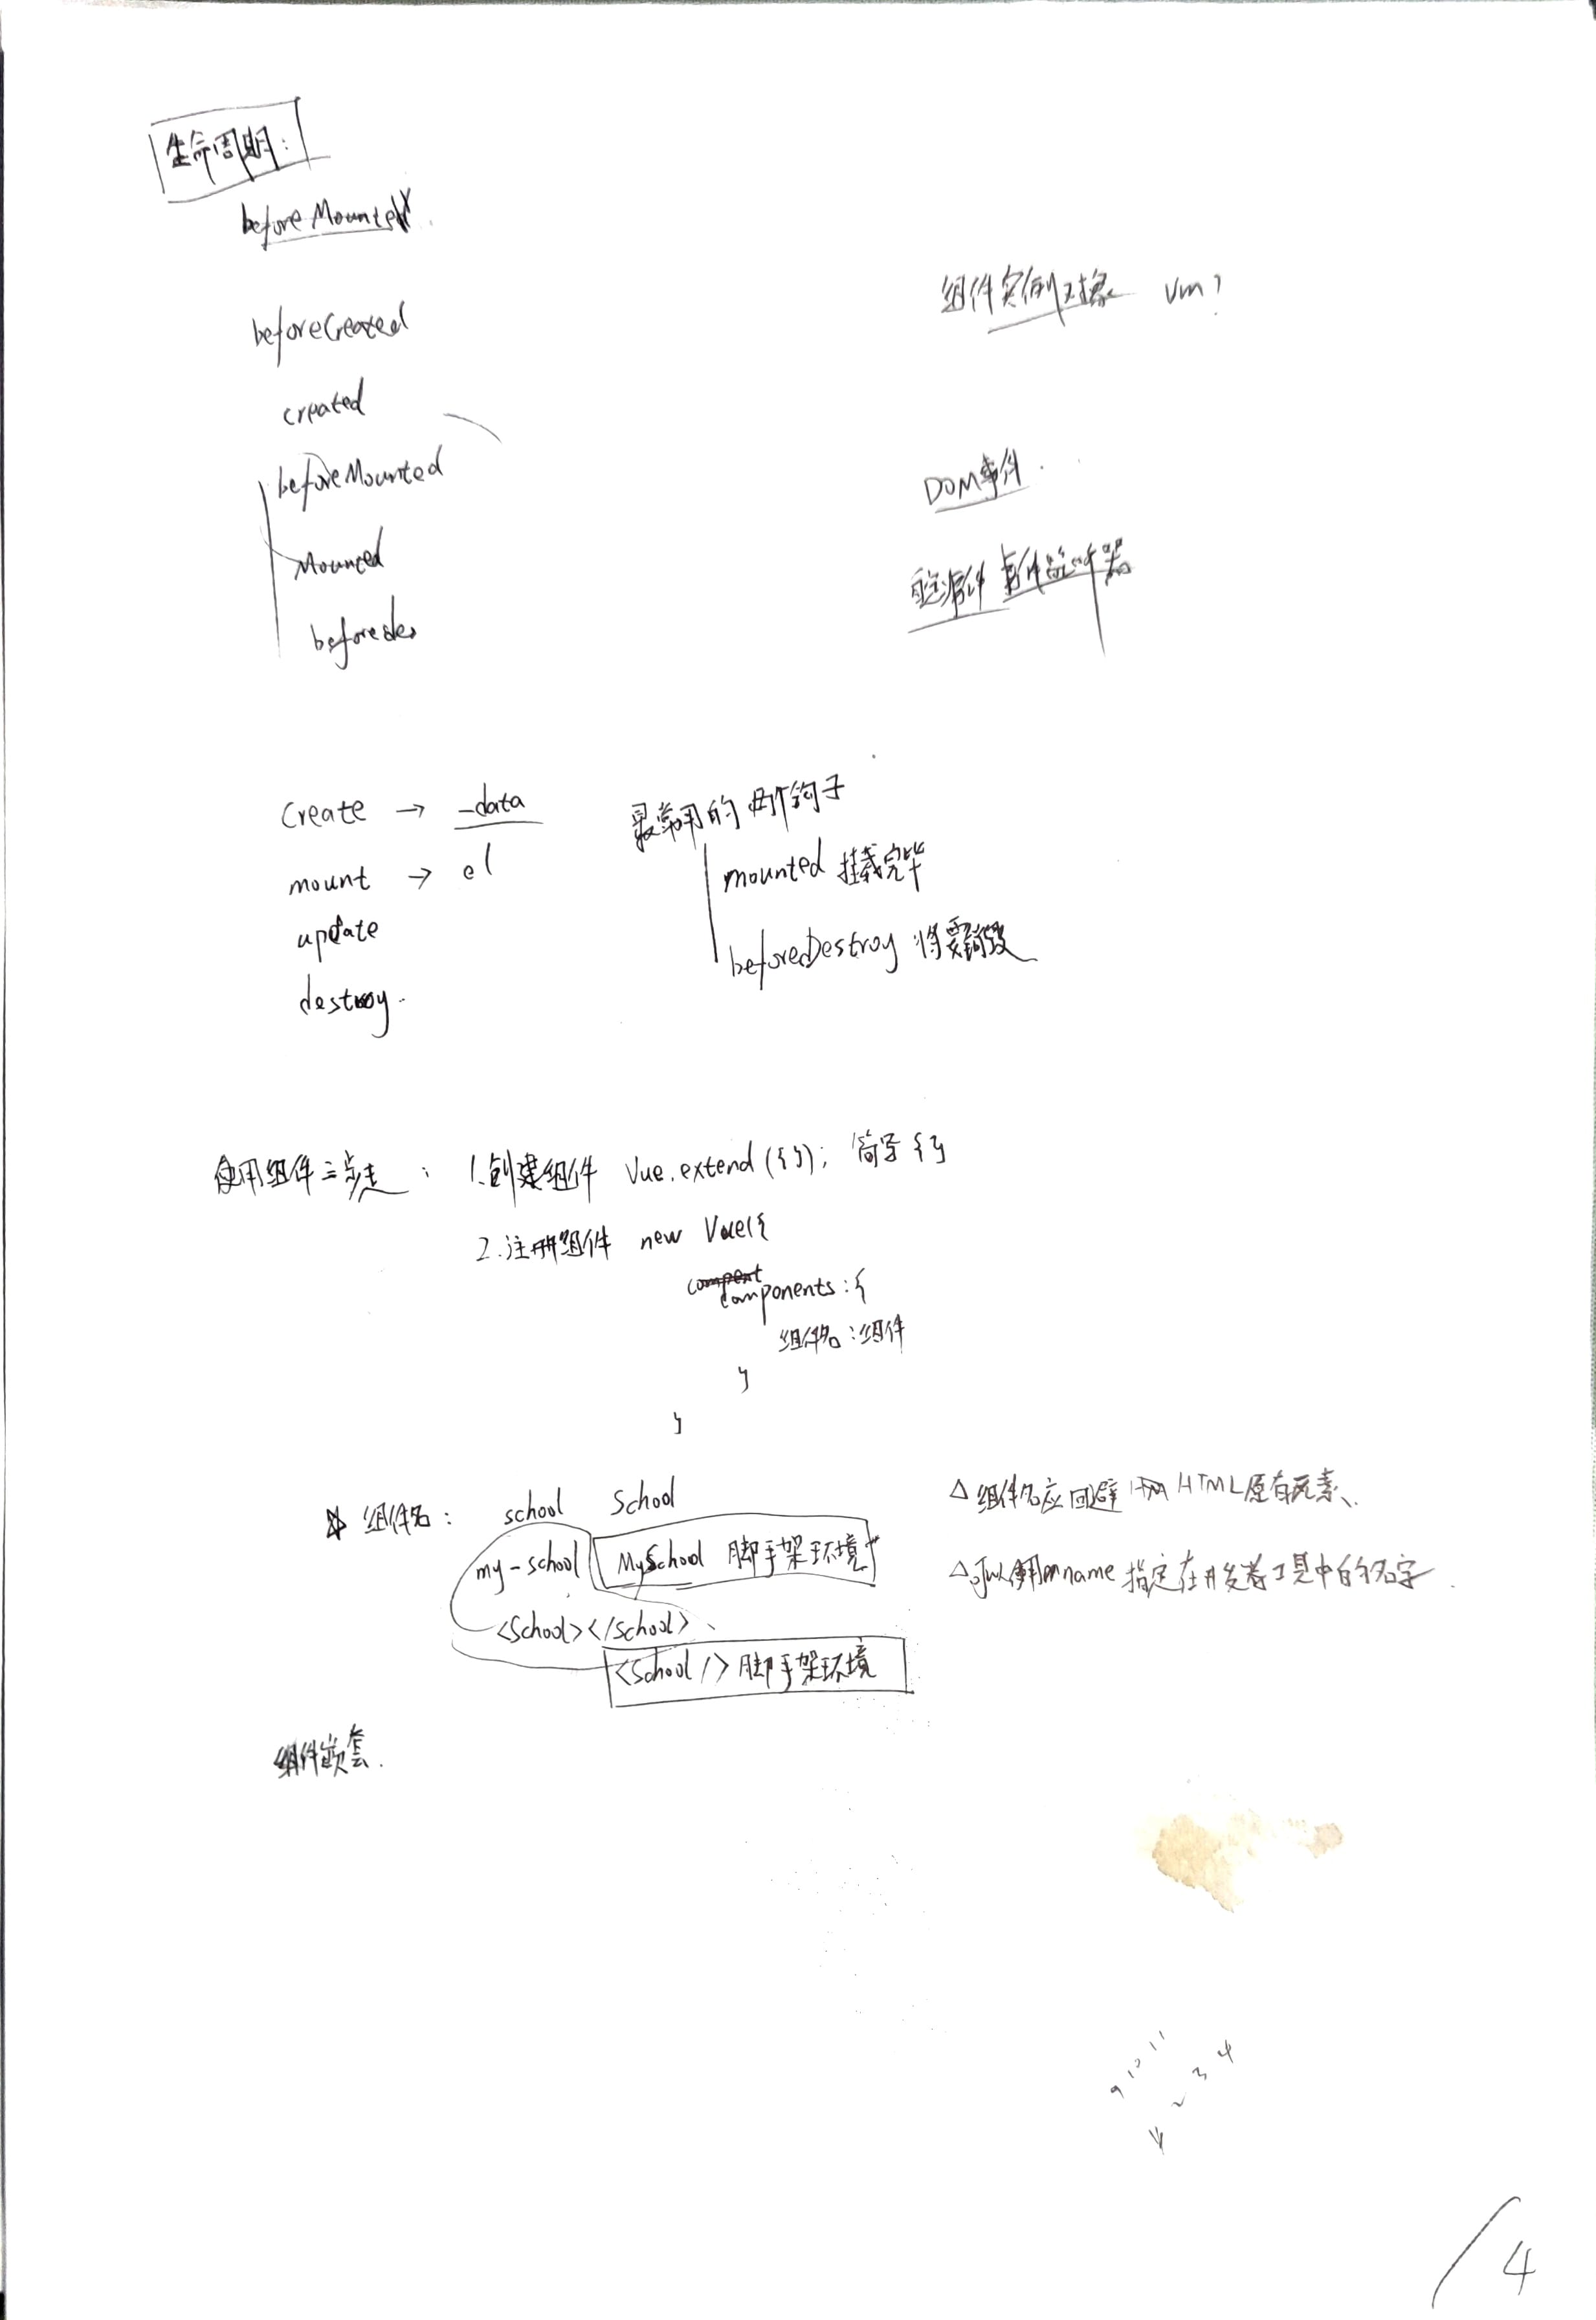 生命周期：
beforeMounted
beforeCreated
组件实例对象 vm?
created
beforeMounted
DOM事件
Mounted
事件监听器
beforedes
create → _data
mount → el
update
destroy.
最常用的两个钩子
mounted 挂载完毕
beforeDestroy 将要销毁
使用组件三步走：1.创建组件 Vue.extend({}); 简写{}
2.注册组件 new Vue({
components:{
组件名:组件
}
}
组件名： school School
my-school MySchool 脚手架环境
<School></School>、
<School/>脚手架环境
△组件名应回避 HTML原有元素、
△可以使用name指定在开发者工具中的名字.
组件嵌套.
9 10 11
2 3 4
/4